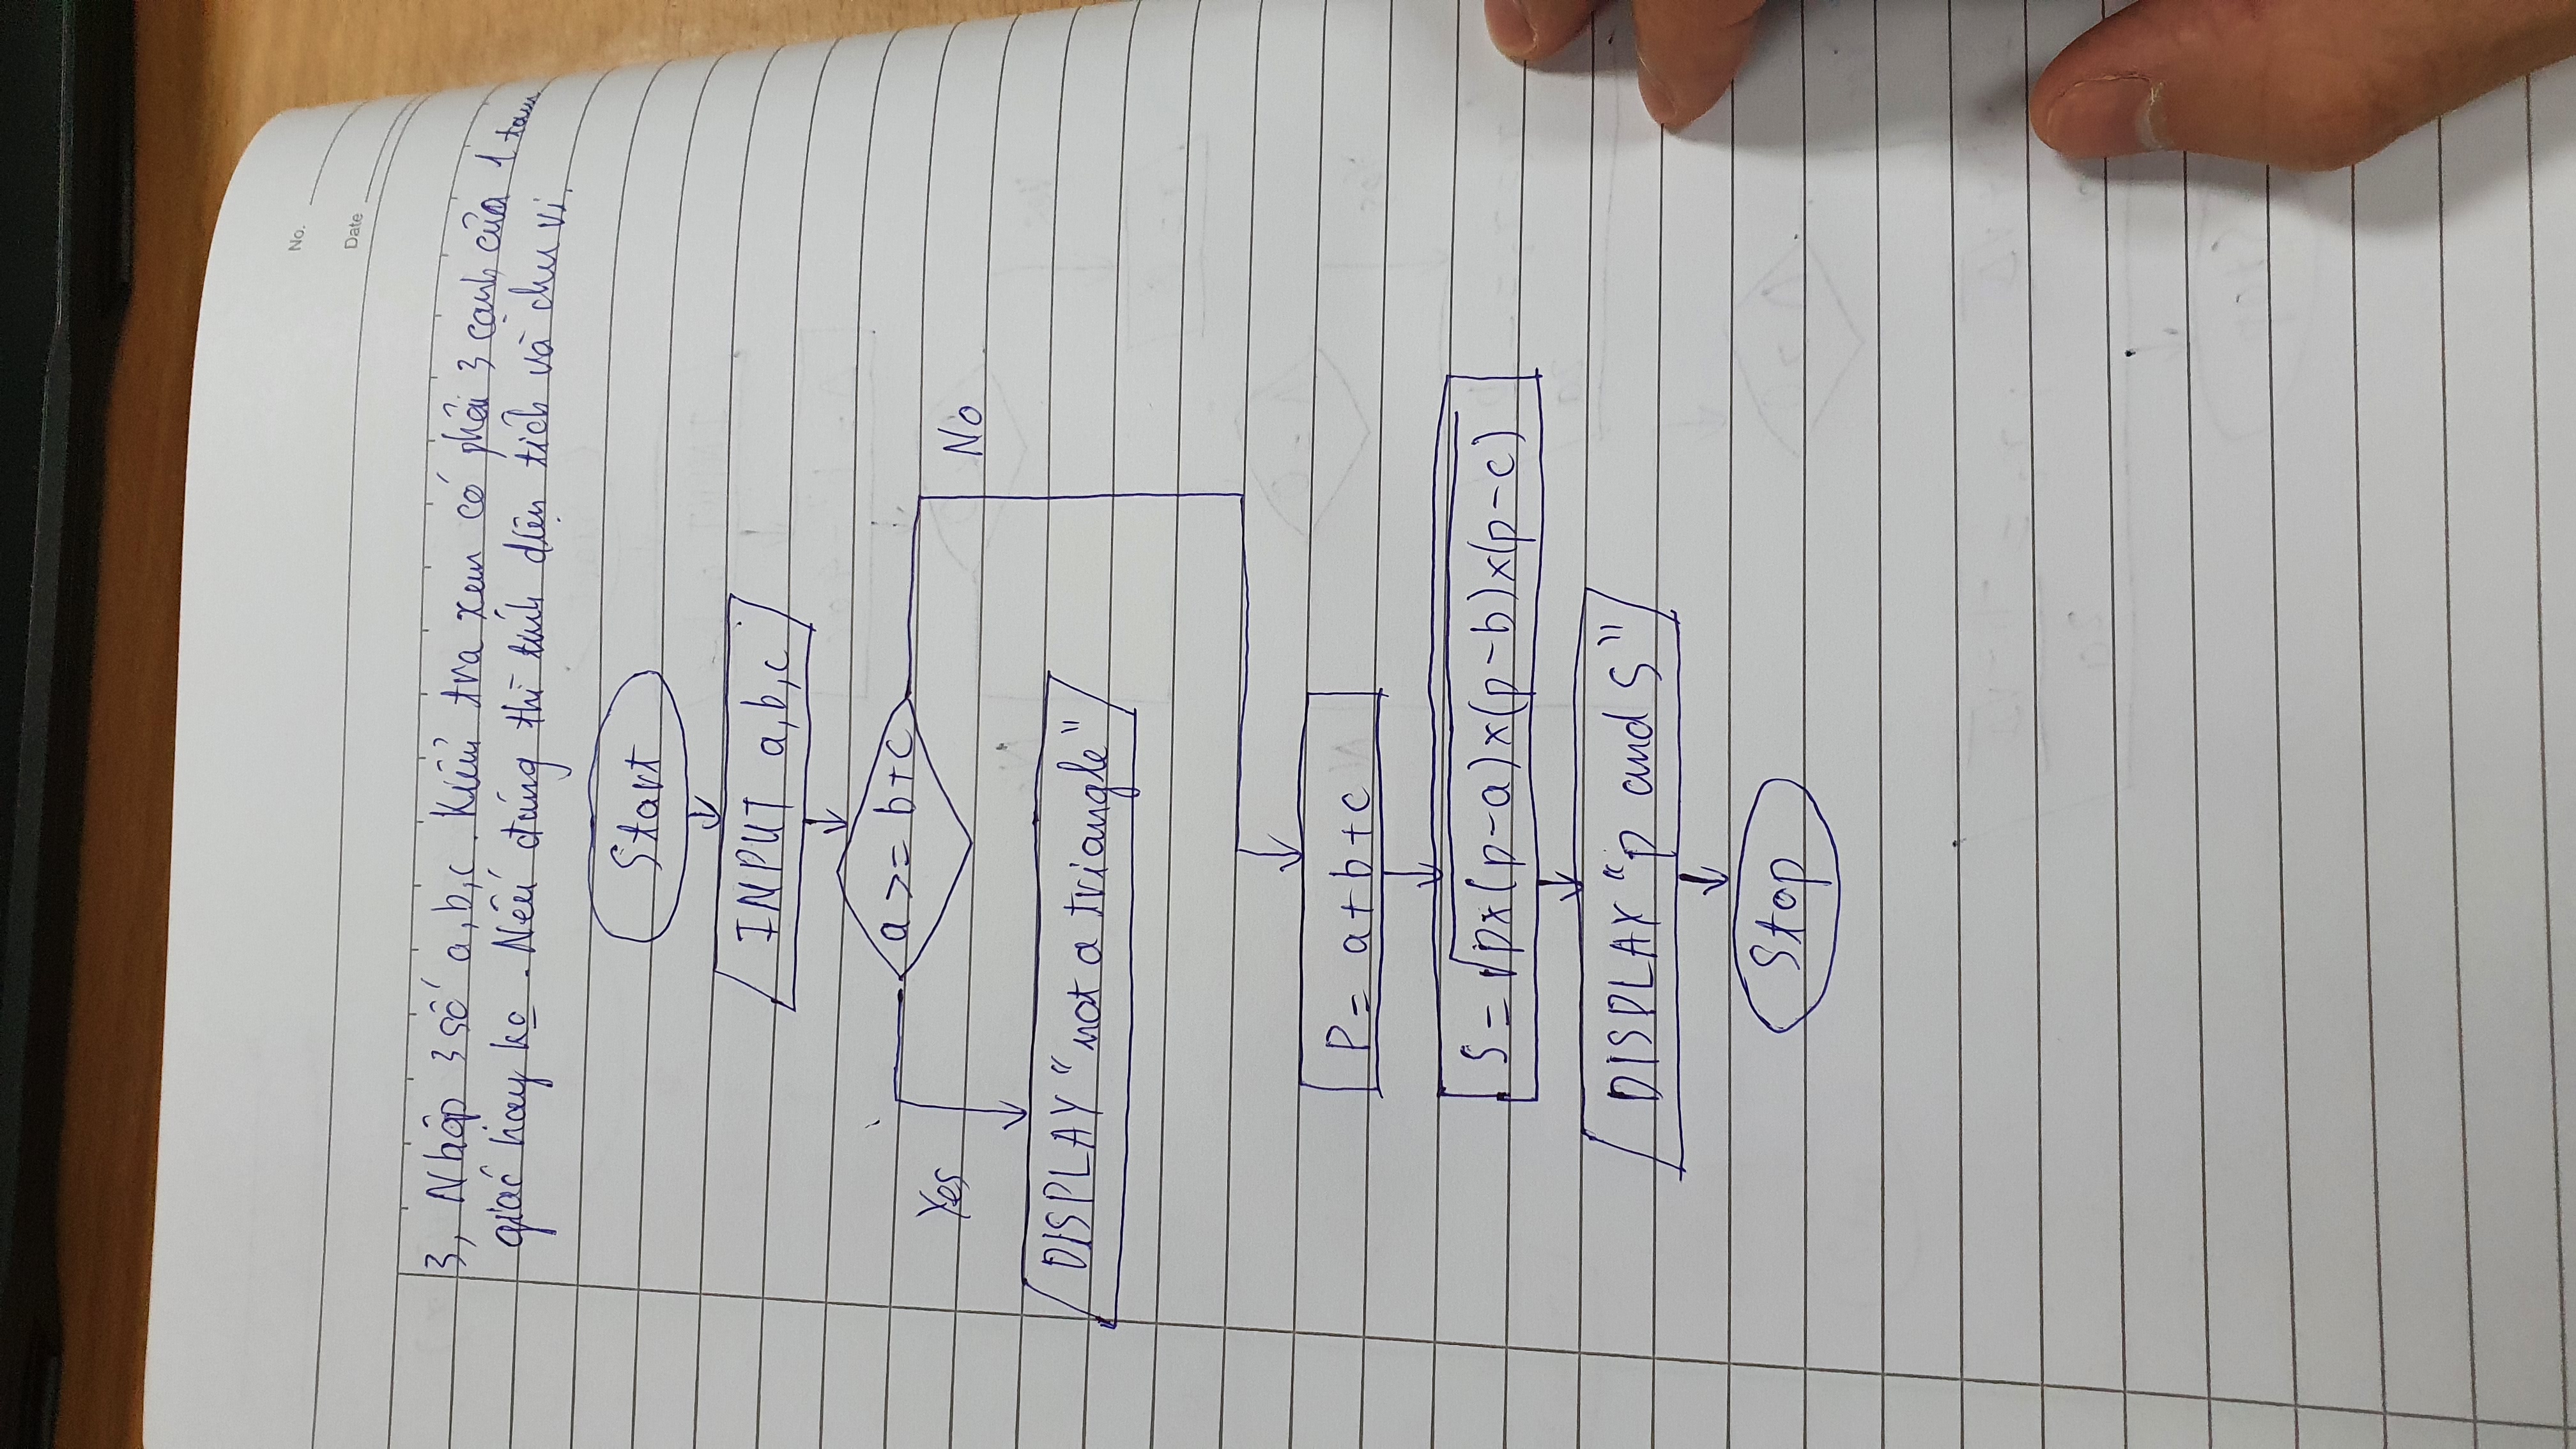 No.
Date
3, Nhập 3 số a,b,c. Kiểm tra xem có phải 3 cạnh của 1 tam
giác hay ko. Nếu đúng thì tính diện tích và chu vi.
Start
INPUT a,b,c
a >= b+c
Yes
No
DISPLAY "not a triangle"
P = a+b+c
S = √p×(p-a)×(p-b)×(p-c)
DISPLAY "p and S"
Stop